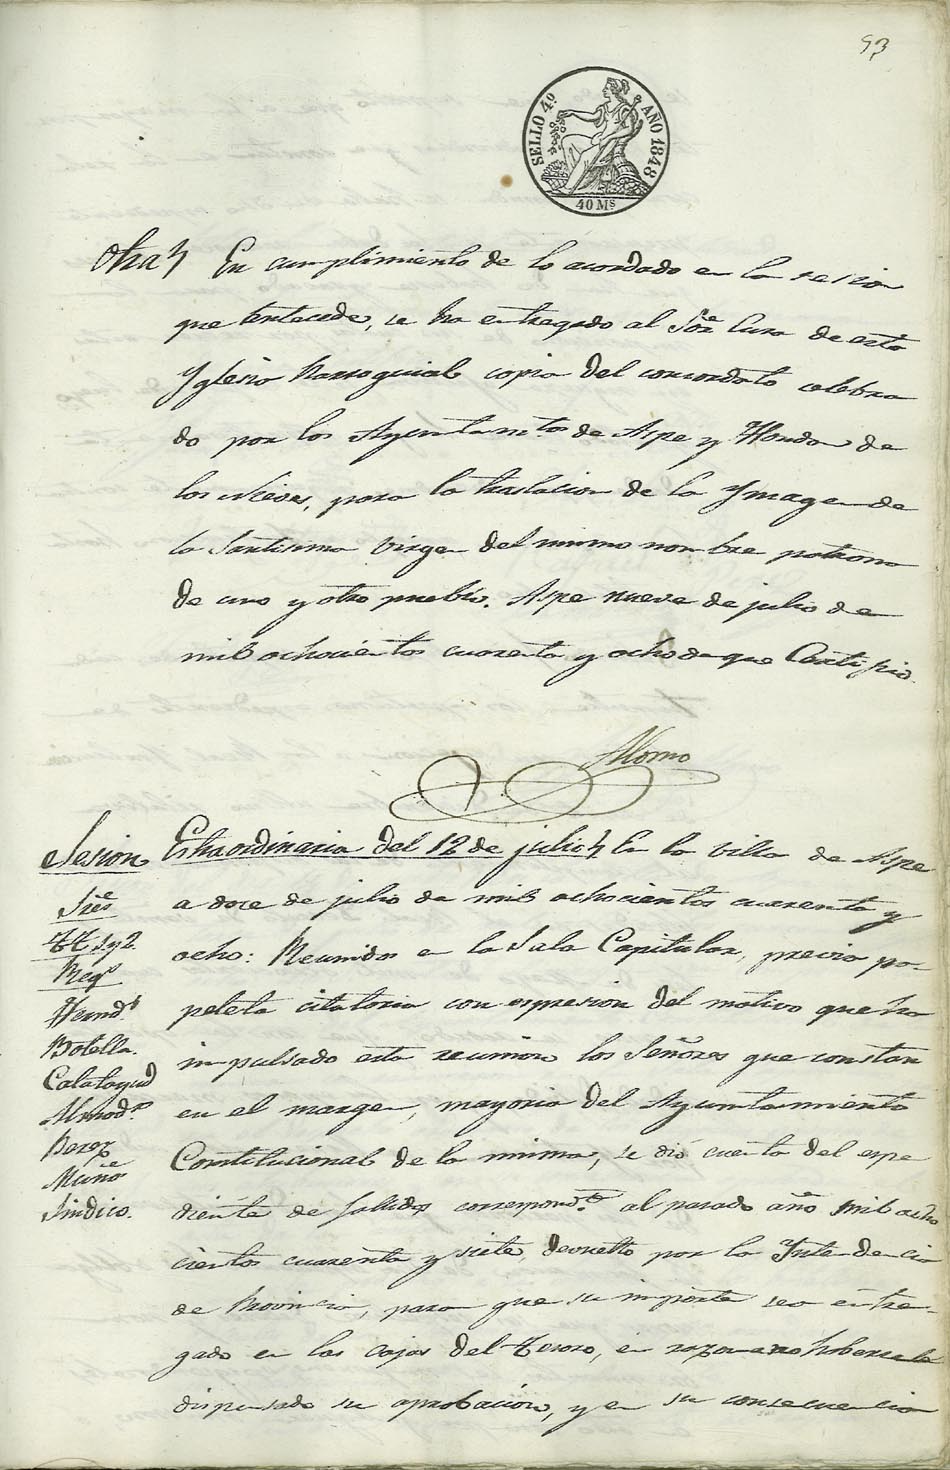 93
SELLO 4º AÑO 1848
40 Ms
Otra En cumplimiento de lo acordado en la sesion
que antecede, se ha entregado al Sor Cura de esta
Yglesia Parroquial copia del concordato celebra
do por los Ayuntamtos de Aspe y Hondon de
las Nieves, para la traslacion de la Ymagen de
la Santisima Virgen del mismo nombre patrona
de uno y otro pueblo. Aspe nueve de julio de
mil ochocientos cuarenta y ocho de que Certifico.
Alonso
Sesion Estraordinaria del 12 de julio En la villa de Aspe
a doce de julio de mil ochocientos cuarenta y
ocho: Reunidos en la Sala Capitular, previa pa-
peleta citatoria con espresion del motivo que ha
impulsado esta reunion los Señores que constan
en el margen, mayoria del Ayuntamiento
Constitucional de la misma, se dió cuenta del espe
diente de fallidos correspondte al pasado año mil ocho
cientos cuarenta y siete, devuelto por la Yntendencia
de Provincia, para que su importe sea entre-
gado en las cajas del tesoro, en razon a no haberse le
dispensado su aprobacion, y en su consecuencia
Sres
TT 1 y 2.
Regs
Hernds
Botella.
Calatayud
Almods
Perez
Muño
Sindico.